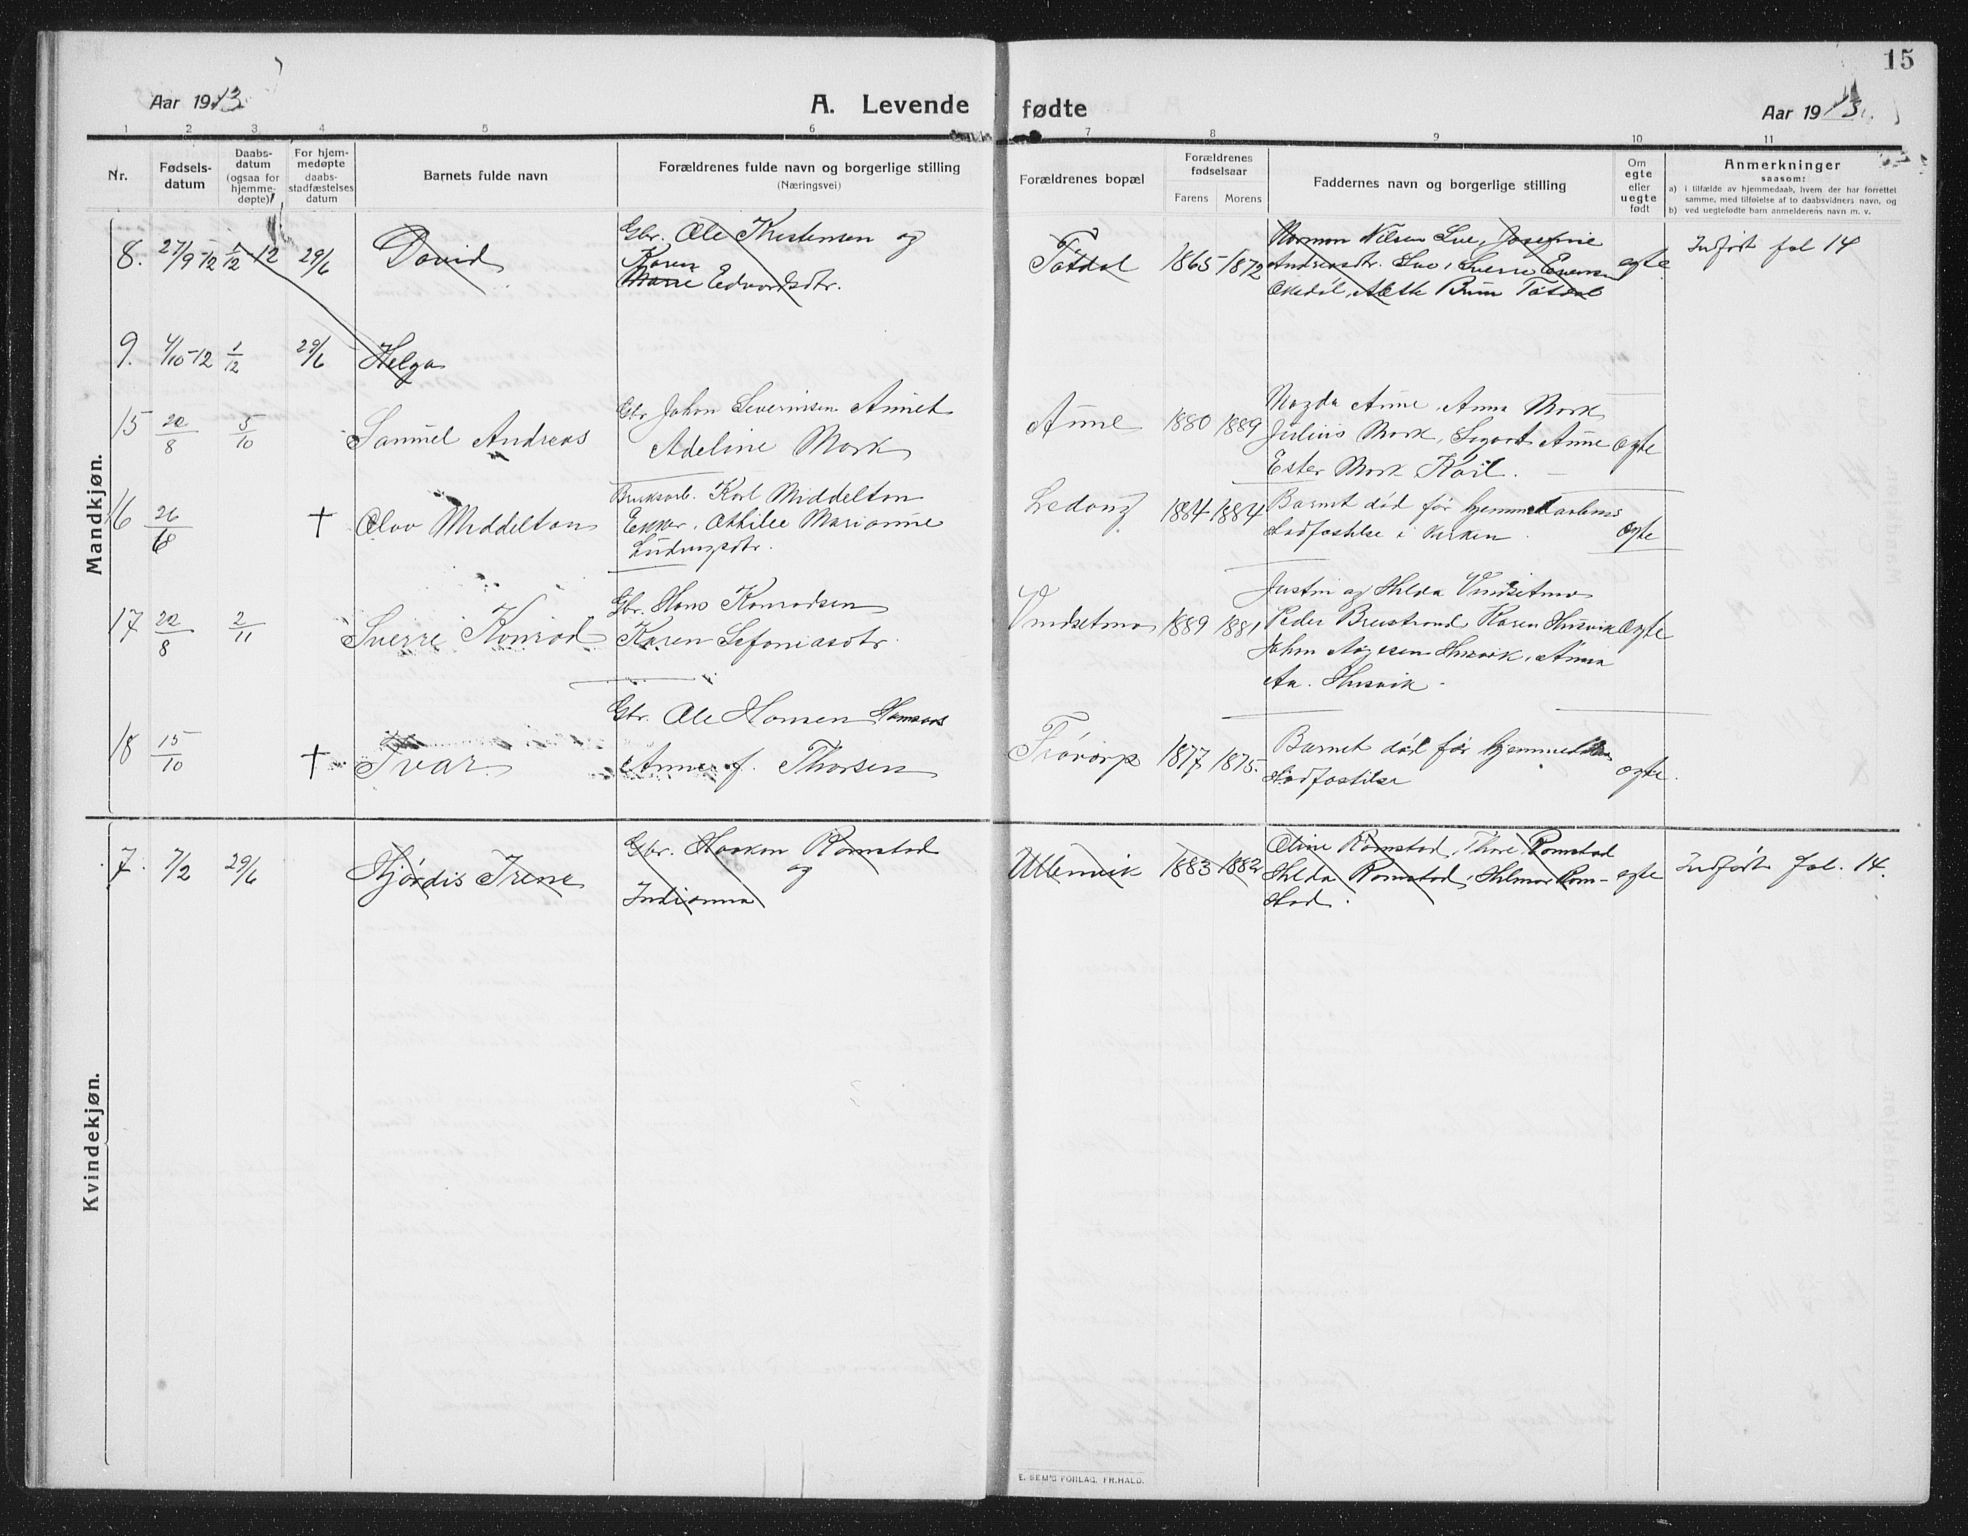 15
Aar 1913
A. Levende fødte
Aar 1913
1 2 3 4 5 6 7 8 9 10 11
Nr.
Fødselsdatum
Daabsdatum (ogsaa for hjemmedøpte)
For hjemmedøpte daabsstadfæstelses datum
Barnets fulde navn
Forældrenes fulde navn og borgerlige stilling
(Næringsvei)
Forældrenes bopæl
Forældrenes fødselsaar
Farens Morens
Faddernes navn og borgerlige stilling
Om egte eller uegte født
Anmerkninger
saasom:
a) i tilfælde av hjemmedaab, hvem der har forrettet
samme, med tilføielse af to daabsvidners navn, og
b) ved uegtefødte barn anmelderens navn m. v.
Mandkjøn.
8. 27/9-12 1/12 12 29/6 David
Gbr. Ole Kristensen og
Karen
Marie Edvardsdtr.
1865 1872
egte
Indført fol 14
9. 4/10-12 1/12 29/6 Helga
15 20/8 5/10 Samuel Andreas
Gbr. Johan Severinsen Aunet
Adeline Mork
Aune 1880 1889
Magda Aune, Anna Mork
Julius Mork, Sigvart Aune
Ester Mork
egte
16 26/8 † Olov Middelton
Bruksarb. Karl Middelton
Othilie Marianne
Ludvigsdtr.
1884 1884
Barnet död før hjemmedaabens
stadfæstelse i kirken.
egte
17 20/8 2/11 Sverre Konrad
Gbr. Hans Konradsen
Karen Sefaniasdtr.
Vindsetmo 1889 1881
Justin og Hilda Vindsetmo
Peder Breistrand Karen Husvik
Husvik, Anna
Aa. Husvik
egte
18 15/10 † Ivar
Gbr. Ole Hansen
Anna f. Thorsen
1877 1875.
Barnet död før hjemmedaab
stadfæstelse
egte.
Kvindekjøn.
7. 7/2 29/6 Hjørdis Irene
Gbr. Haakon Ramstad
og
Indianna
Ullenvik 1883 1882
Oline Ramstad, Thore Ramstad
Hilda Ramstad, Hilmar Ram-
stad.
egte
Indført fol. 14.
E. SEM'S FORLAG, FR.HALD.